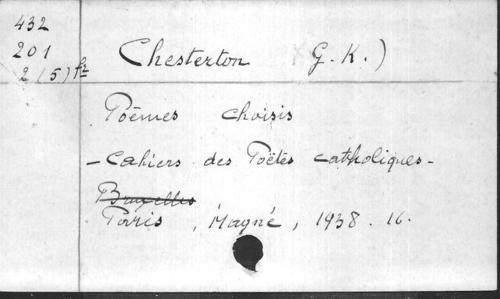 432
201
2 (5) fr
Chesterton G. K.)
Poèmes choisis
- Cahiers des Poëtes catholiques -
Bruxelles
Paris, Magné, 1938. 16.